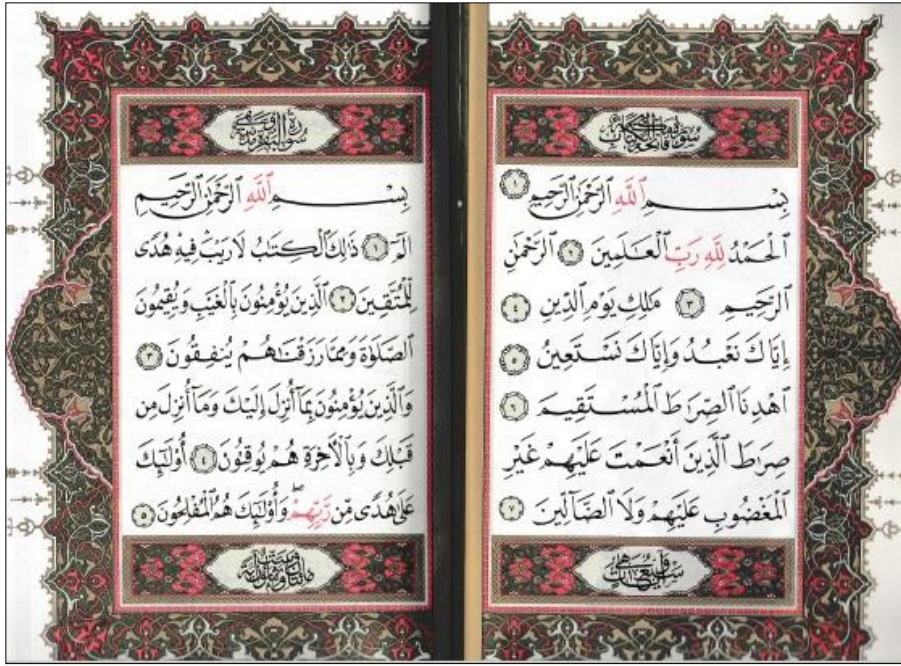 سورة فاتحة الكتاب
بِسْمِ ٱللَّهِ ٱلرَّحْمَٰنِ ٱلرَّحِيمِ ١
ٱلْحَمْدُ لِلَّهِ رَبِّ ٱلْعَـٰلَمِينَ ٢ ٱلرَّحْمَٰنِ
ٱلرَّحِيمِ ٣ مَـٰلِكِ يَوْمِ ٱلدِّينِ ٤
إِيَّاكَ نَعْبُدُ وَإِيَّاكَ نَسْتَعِينُ ٥
ٱهْدِنَا ٱلصِّرَٰطَ ٱلْمُسْتَقِيمَ ٦
صِرَٰطَ ٱلَّذِينَ أَنْعَمْتَ عَلَيْهِمْ غَيْرِ
ٱلْمَغْضُوبِ عَلَيْهِمْ وَلَا ٱلضَّآلِّينَ ٧
وهي سبع آيات
سورة البقرة
بِسْمِ ٱللَّهِ ٱلرَّحْمَٰنِ ٱلرَّحِيمِ
الٓمٓ ١ ذَٰلِكَ ٱلْكِتَـٰبُ لَا رَيْبَ فِيهِ هُدًى
لِّلْمُتَّقِينَ ٢ ٱلَّذِينَ يُؤْمِنُونَ بِٱلْغَيْبِ وَيُقِيمُونَ
ٱلصَّلَوٰةَ وَمِمَّا رَزَقْنَـٰهُمْ يُنفِقُونَ ٣
وَٱلَّذِينَ يُؤْمِنُونَ بِمَآ أُنزِلَ إِلَيْكَ وَمَآ أُنزِلَ مِن
قَبْلِكَ وَبِٱلْـَٔاخِرَةِ هُمْ يُوقِنُونَ ٤ أُو۟لَـٰٓئِكَ
عَلَىٰ هُدًى مِّن رَّبِّهِمْ ۖ وَأُو۟لَـٰٓئِكَ هُمُ ٱلْمُفْلِحُونَ ٥